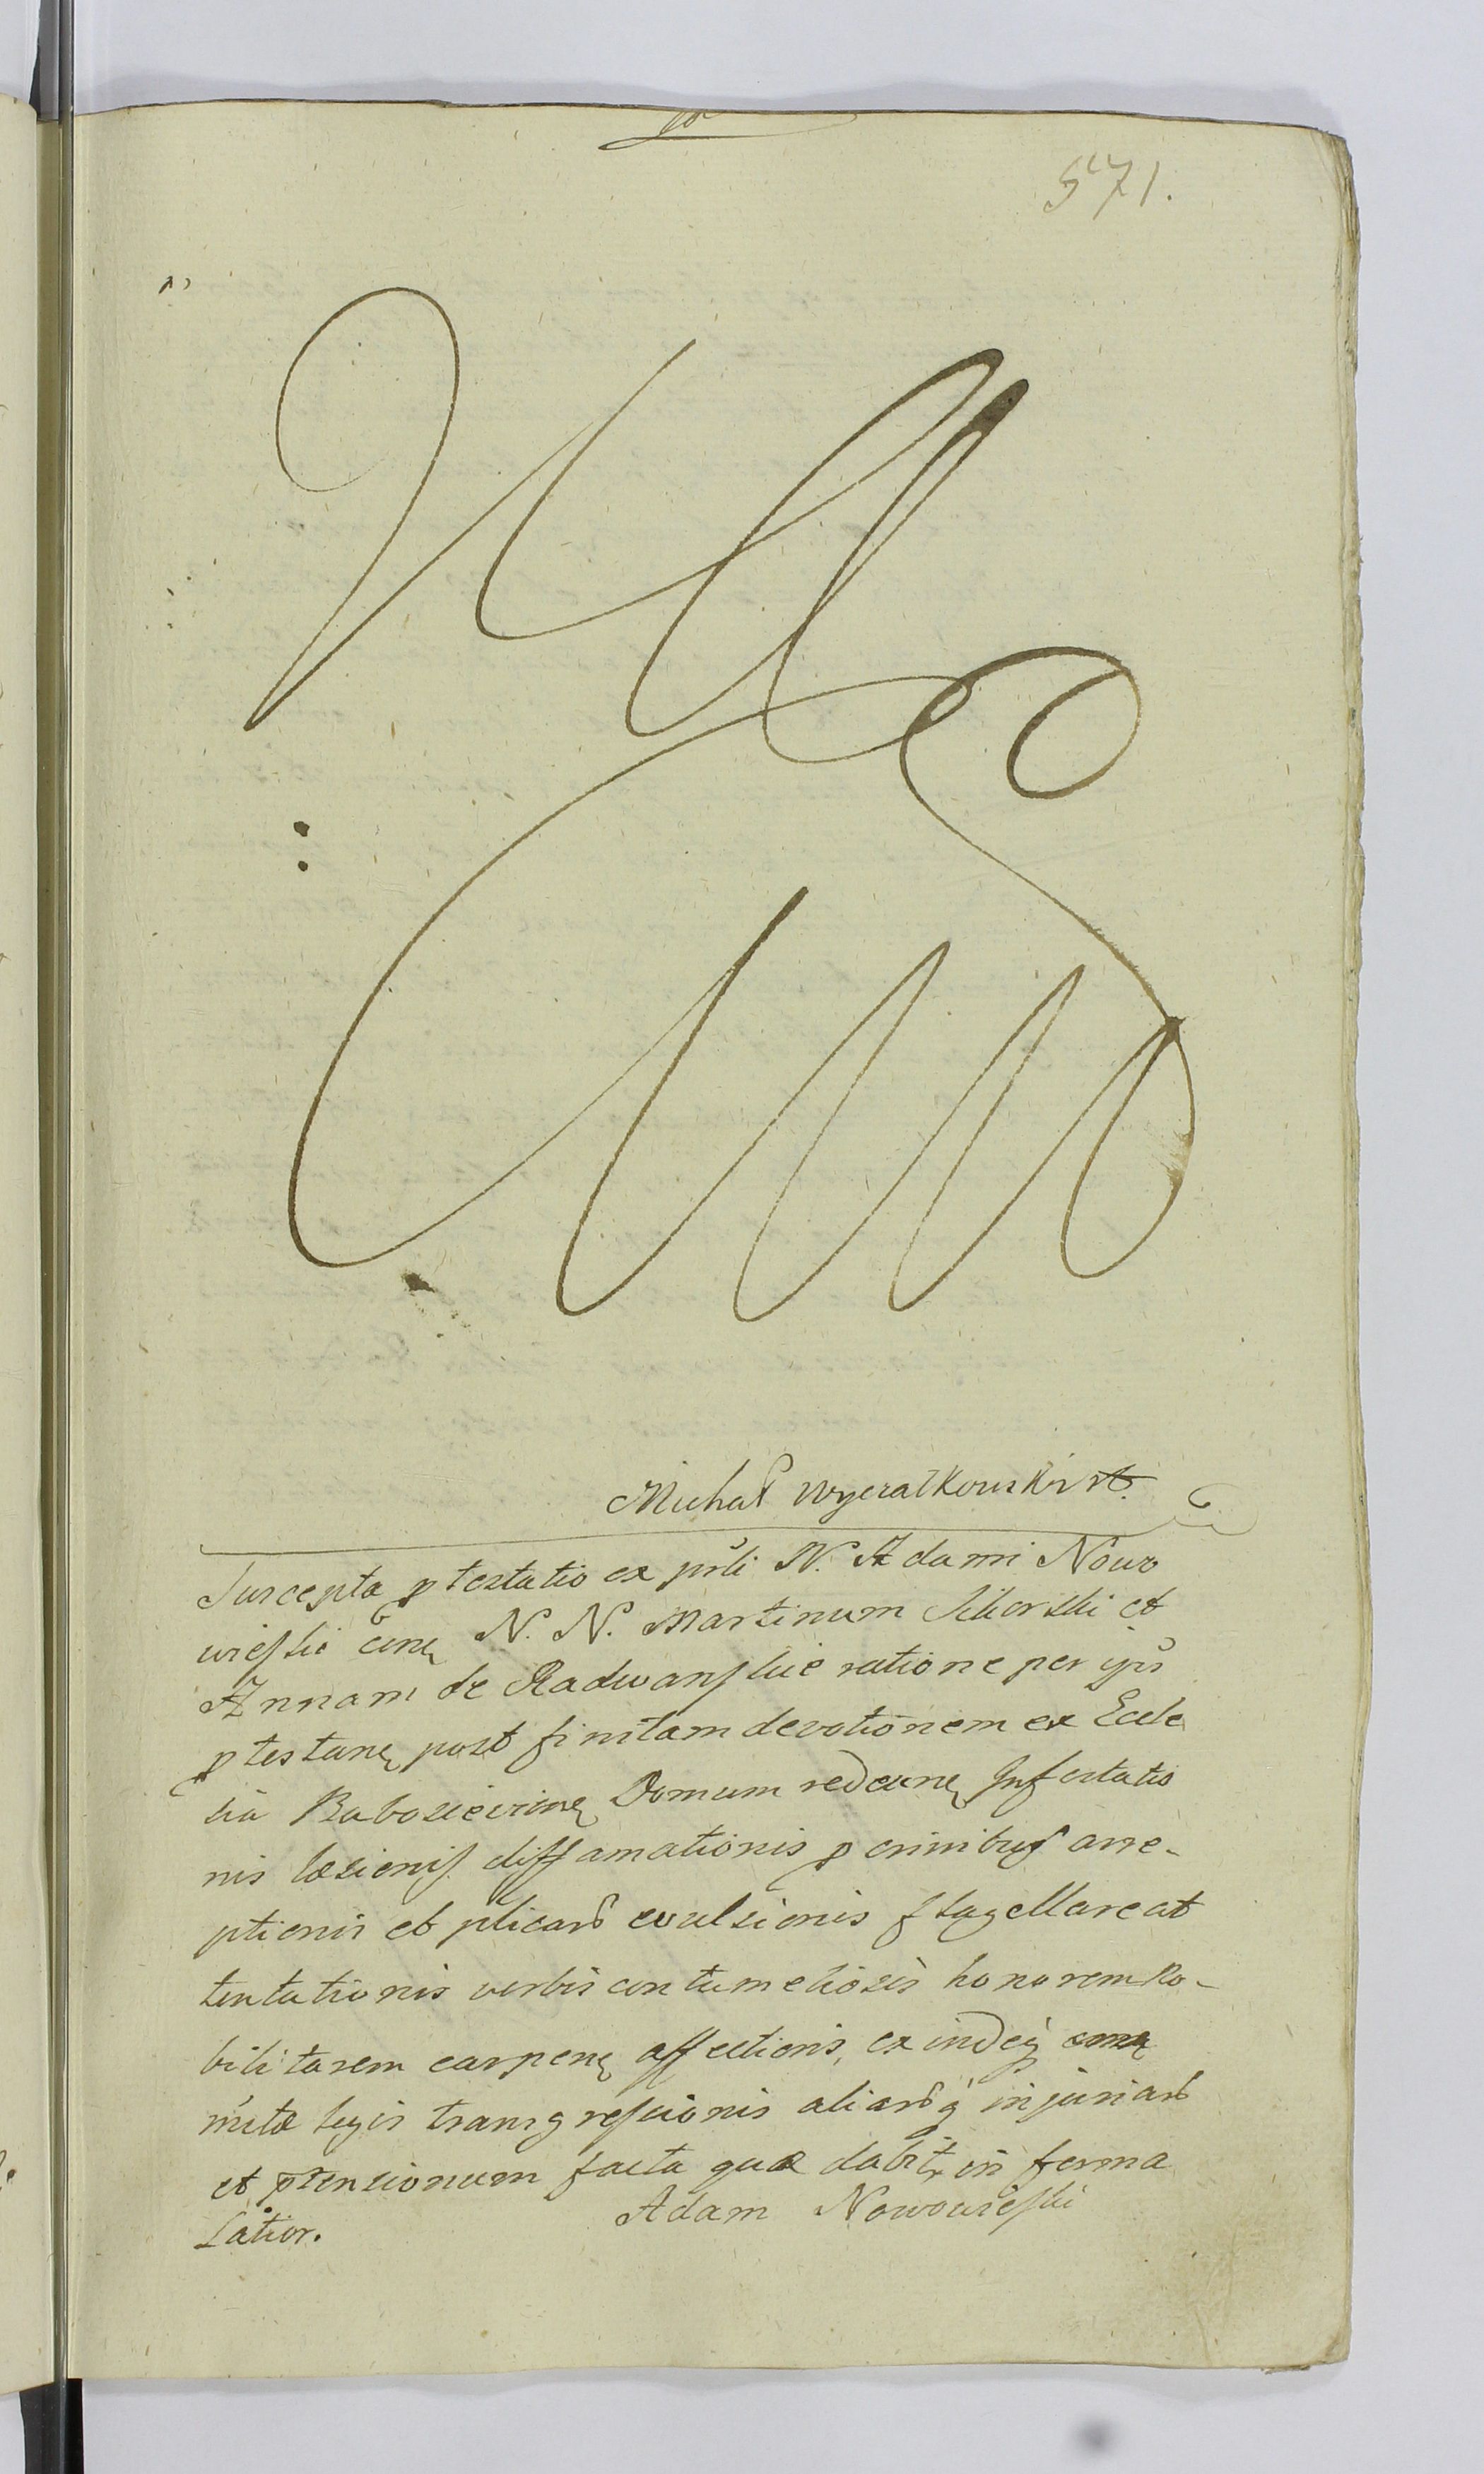 571.
Michał Wyczałkowski
Suscepta ptestatio ex pti N. Adami Nowo
wieſki N. N. Martinum Sikorski et
Annam de Radwanſkie ratione per
ptestanę post finitam devotionem ex Eccle
sia Domum redeunę Infestatio
nis læsionis diffamationis p crinibus arre-
ptionis et plicarũ evulsionis flagellare at
tentationis verbis contumeliosis honorem No-
bilitarem carpenę affectionis, ex indeq
legis transgreſsionis aliarũq injuriarũ
et ptensionum facta quæ dabitr in forma
Latior.
Adam Nowowieſki